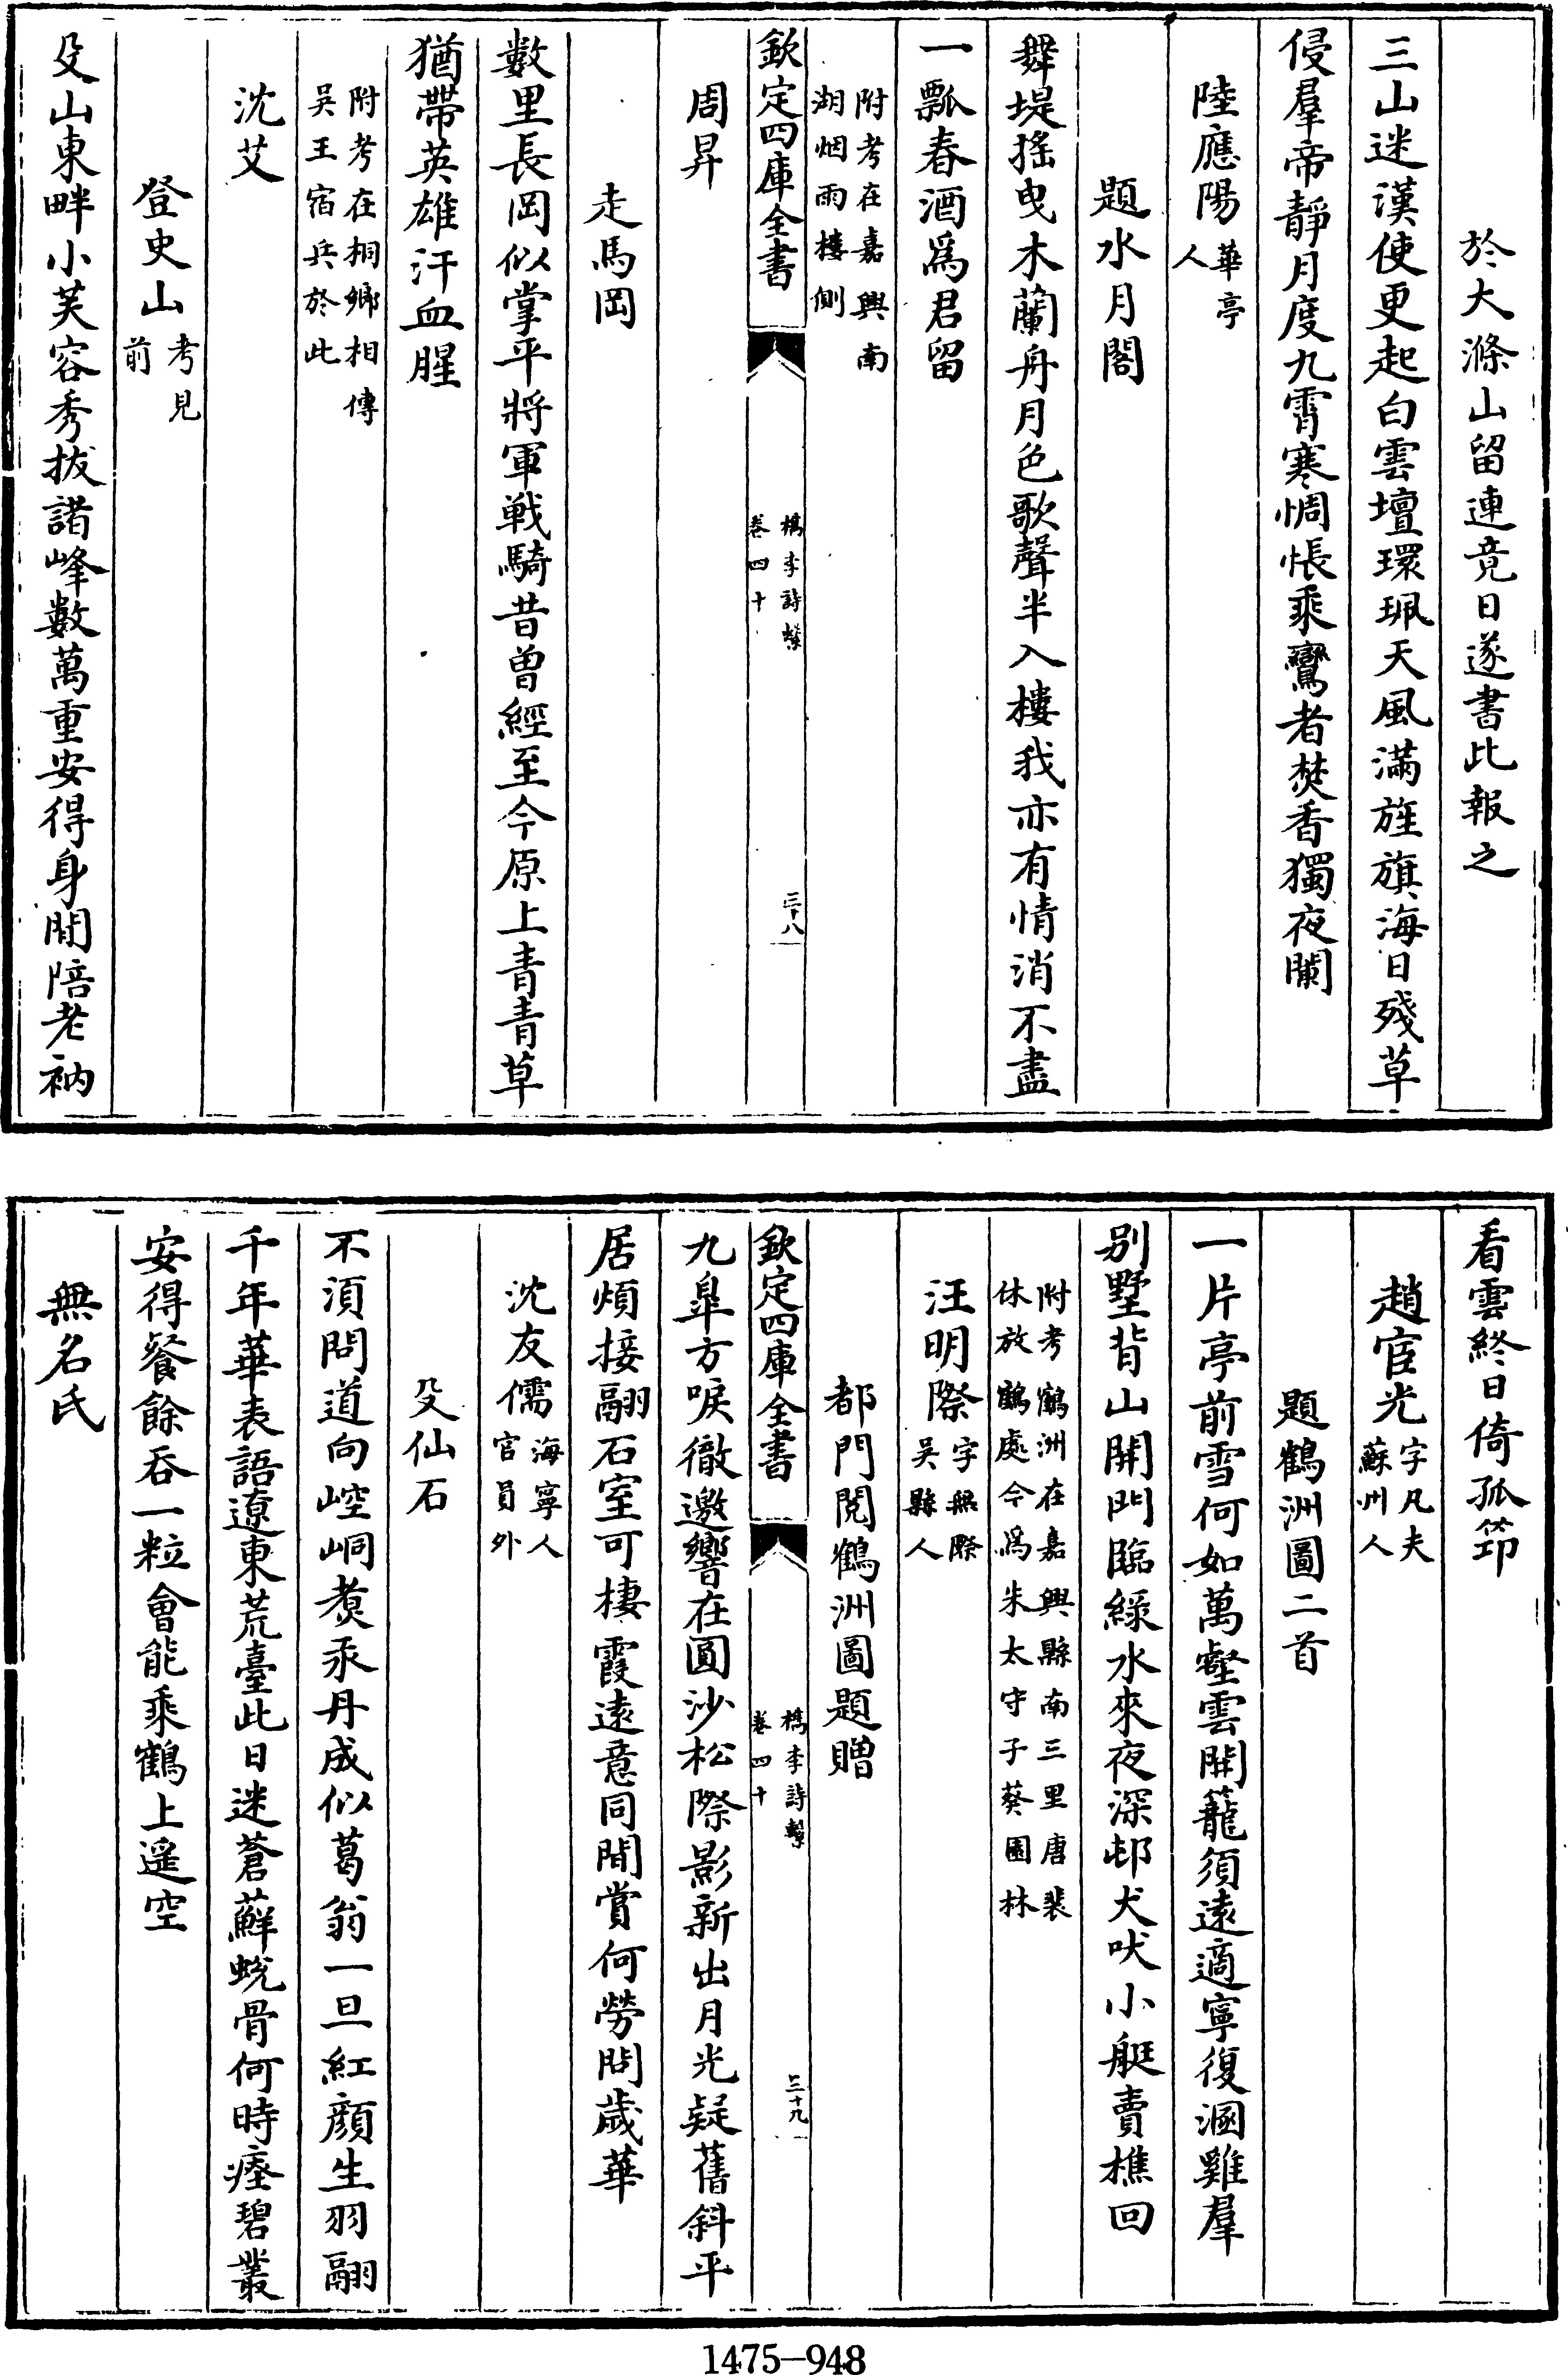 於大滌山留連竟日遂書此報之
三山迷漢使更起白雲壇環珮天風滿旌旗海日殘草
侵羣帝靜月度九霄寒惆悵乘鸞者焚香獨夜闌
陸應陽華亭人
題水月閣
舞堤搖曳木蘭舟月色歌聲半入樓我亦有情消不盡
一瓢春酒爲君留
附考在嘉興南
湖烟雨樓側
欽定四庫全書
檇李詩繫
卷四十
三十八
周昇
走馬岡
數里長岡似掌平將軍戰騎昔曾經至今原上青青草
猶帶英雄汗血腥
附考在桐鄉相傳
吳王宿兵於此
沈艾
登史山考見前
殳山東畔小芙容秀拔諸峰數萬重安得身閒陪老衲
看雲終日倚孤筇
趙宧光字凡夫
蘇州人
題鶴洲圖二首
一片亭前雪何如萬壑雲開籠須遠適寧復溷雞羣
別墅背山開門臨綠水來夜深邨犬吠小艇賣樵回
附考鶴洲在嘉興縣南三里唐裴
休放鶴處今爲朱太守子葵園林
汪明際字無際
吳縣人
都門閱鶴洲圖題贈
欽定四庫全書
檇李詩繫
卷四十
三十九
九臯方唳徹邀響在圓沙松際影新出月光疑舊斜平
居煩接翮石室可棲霞遠意同閒賞何勞問歲華
沈友儒海寧人
官員外
殳仙石
不須問道向崆峒煑汞丹成似葛翁一旦紅顏生羽翮
千年華表語遼東荒臺此日迷蒼蘚蛻骨何時瘞碧叢
安得餐餘吞一粒會能乘鶴上遥空
無名氏
1475-948